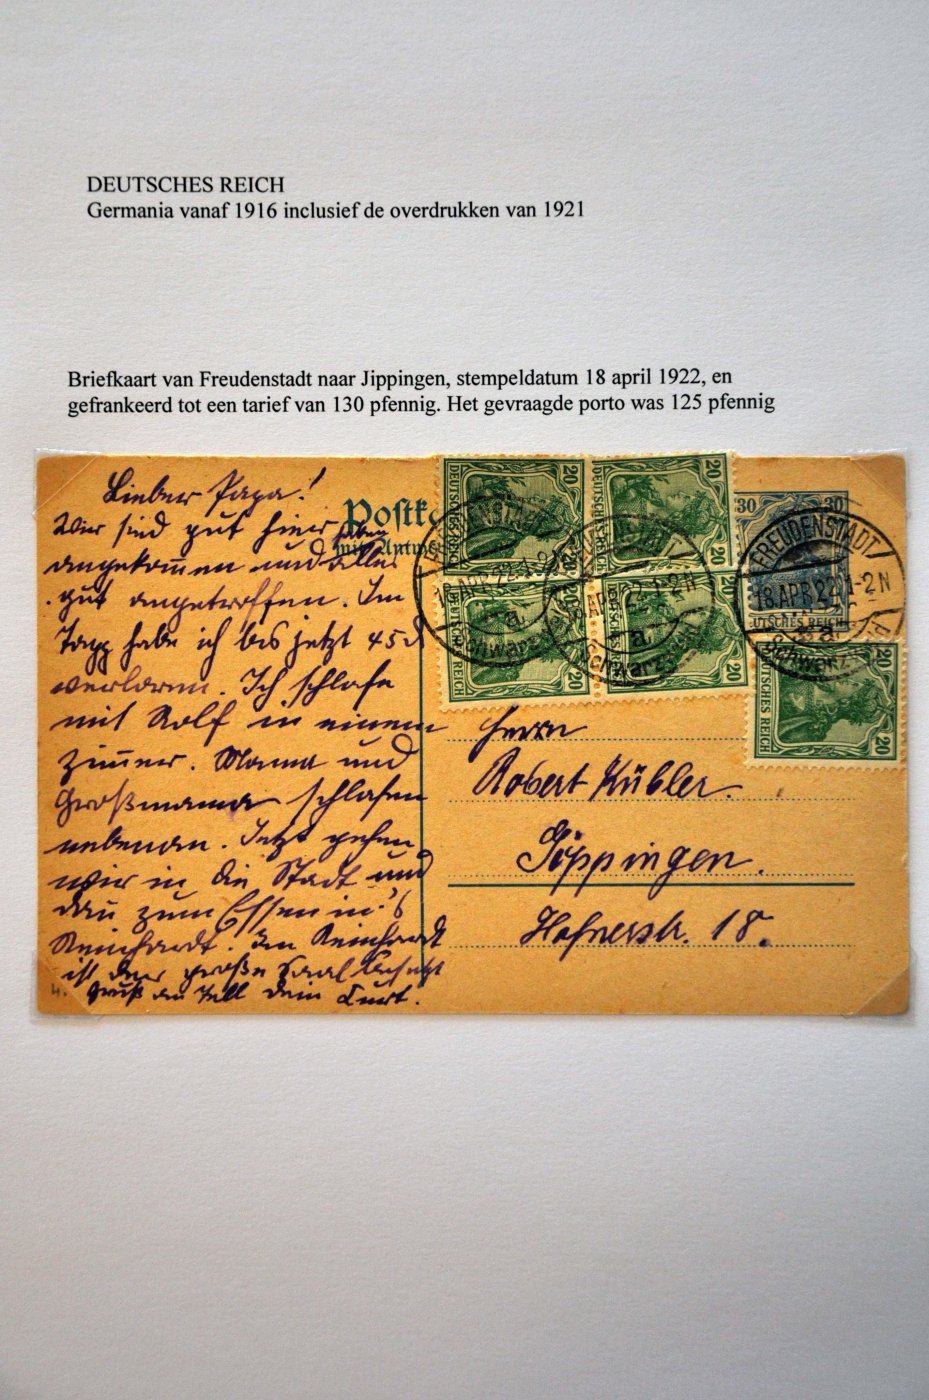 DEUTSCHES REICH
Germania vanaf 1916 inclusief de overdrukken van 1921
Briefkaart van Freudenstadt naar Jippingen, stempeldatum 18 april 1922, en
gefrankeerd tot een tarief van 130 pfennig. Het gevraagde porto was 125 pfennig
Lieber Papa!
Wir sind gut hier
angekommen und alles
gut angetroffen. Im
habe ich bis jetzt 45
verloren. Ich schlafe
mit Rolf in einem
Zimmer. Mama und
Großmama schlafen
nebenan. Jetzt gehen
wir in die Stadt und
zum Essen in's
Reinhardt. Im Reinhardt
ist der große Saal besetzt
Gruß dein Kurt.
Postk
mit Antwo
DEUTSCHES REICH 20
DEUTSCHES REICH 20
DEUTSCHES REICH 20
DEUTSCHES REICH 20
30 30
UTSCHES REICH
DEUTSCHES REICH 20
FREUDENSTADT
18.APR.22.1-2N
a
Schwarz
Herrn
Robert Kübler.
Göppingen.
Hafnerstr. 18.